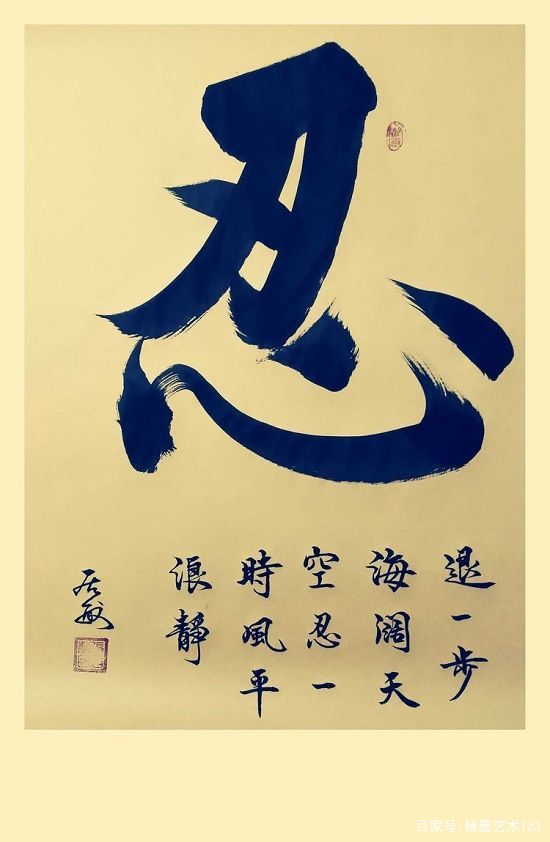 忍
退一步
海濶天
空忍一
時風平
浪靜
百家号/墨艺术123